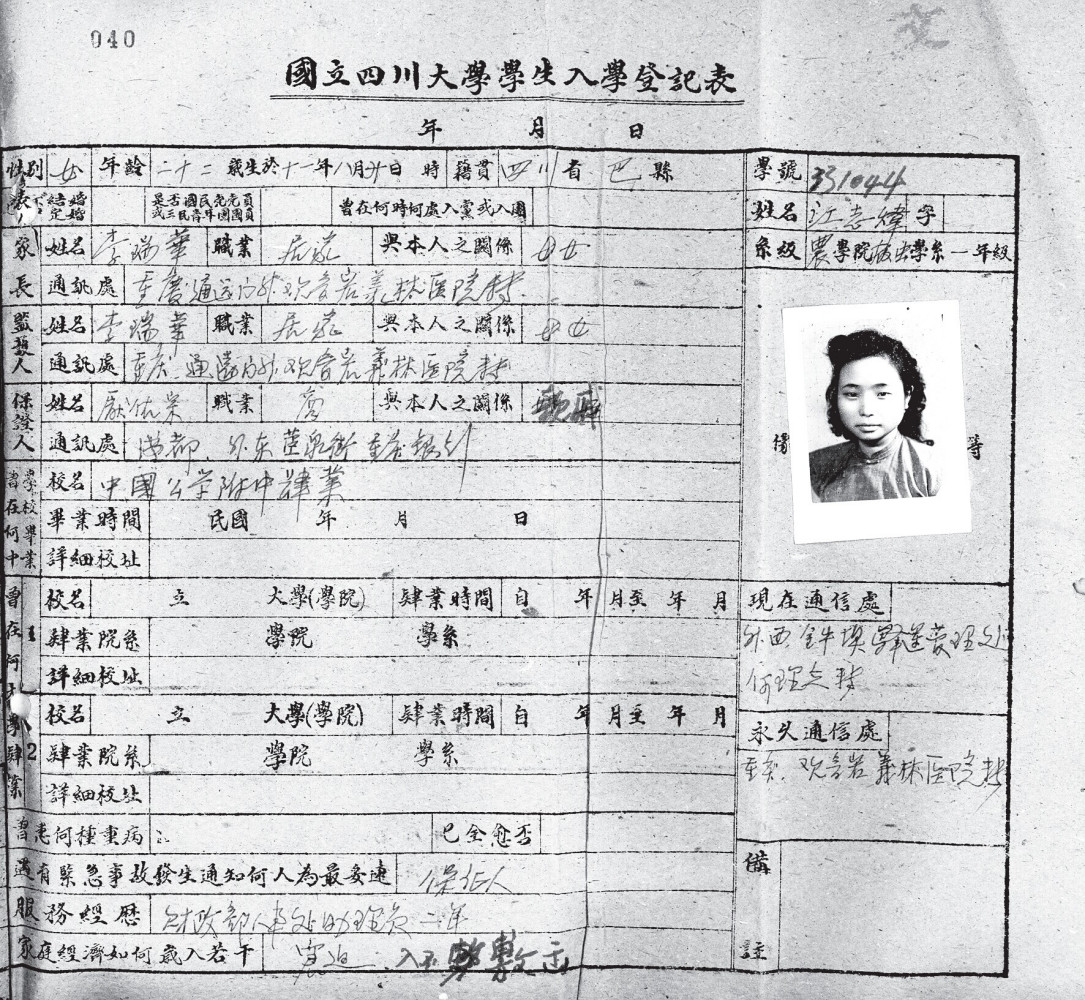 040
國立四川大學學生入學登記表
年 月 日
性別 女 年齡 二十二 歲生於十一年八月廿日 時 籍貫 四川省巴縣
學號 331044
結婚 定婚 是否國民党党員或三民青年團團員 曾在何時何處入黨或入團
姓名 江志煒 字
系級 農學院 學系一年級
家長 姓名 李瑞華 職業 與本人之關係 母女
通訊處 重慶通远门外观音岩義林医院转
監護人 姓名 李瑞華 職業 與本人之關係 母女
通訊處 重庆 通遠门外观音岩義林医院转
保證人 姓名 職業 商 與本人之關係
通訊處 成都 外东
等
曾在何中學校畢業 校名 中國公学附中肄業
畢業時間 民國 年 月 日
詳細校址
曾在何大學肄業
1 校名 立 大學(學院) 肄業時間 自 年 月至 年 月
肄業院系 學院 學系
詳細校址
2 校名 立 大學(學院) 肄業時間 自 年 月至 年 月
肄業院系 學院 學系
詳細校址
現在通信處
外西 金牛壩 管理处
何理立转
永久通信處
重庆 观音岩義林医院转
曾患何種重病 已全愈否
遇有緊急事故發生通知何人為最妥速 保证人
服務經歷 财政部人事处助理员二年
家庭經濟如何歲入若干 窘迫 入不敷出
備註